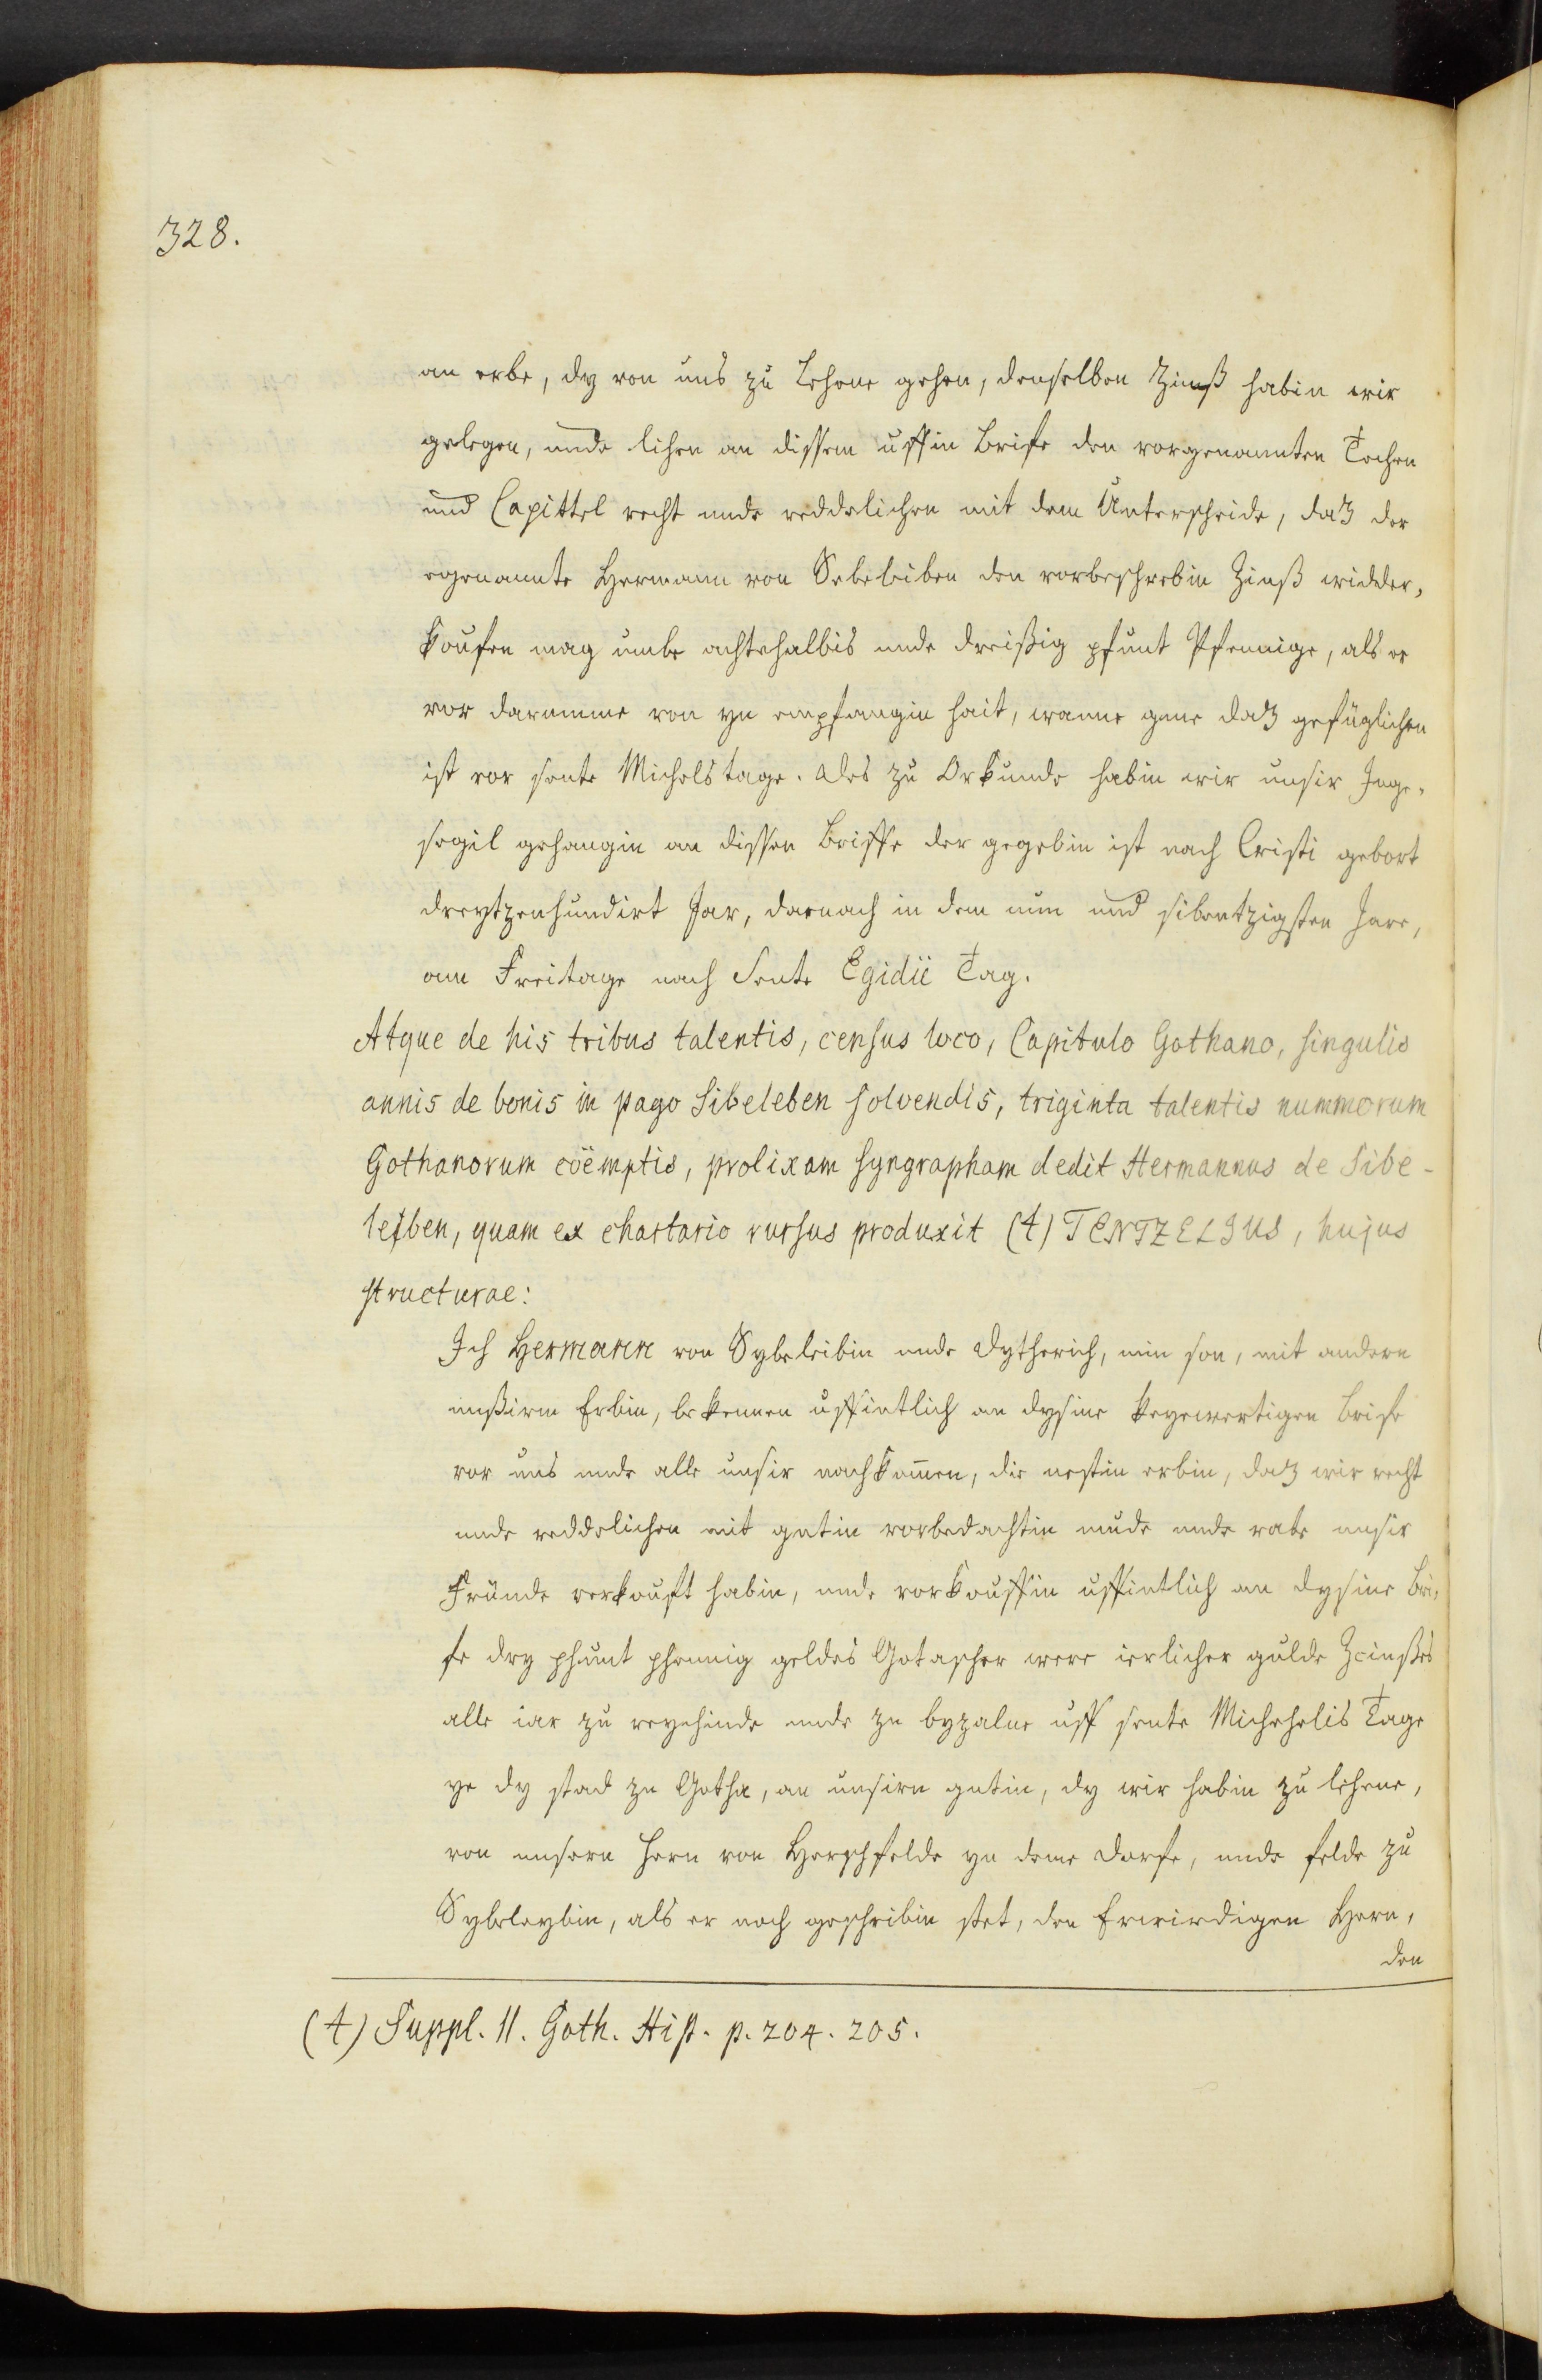 328.
an erbe, dy von uns zu Lehene gehen, denselben Zinß habin wir
gelegen, unde lihen an dissem uffin Brife den vorgenannten Techen
und Capittel recht unde reddelichen mit dem Unterscheide, daz der
egenannte Hermann von Sebeleiben den vorbeschrebin Zinß widder-
koufen mag umbe achtehalbis unde dreißig pfunt Pfennige, als er
vor darumme von yn empfangin hait, wanne gene daz gefüglichen
ist vor sente Michelstage. Des zu Orkunde habin wir unsir Inge-
segil gehangin an dissen Briffe der gegebin ist nach Cristi gebort
dreytzenhundirt Jar, darnach in dem nun und sibentzigsten Jare,
am Freitage nach Sente Egidii Tag.
Atque de his tribus talentis, census loco, Capitulo Gothano, singulis
annis de bonis in pago Sibeleben solvendis, triginta talentis nummorum
Gothanorum coëmptis, prolixam syngrapham dedit Hermannus de Sibe-
leiben, quam ex chartario rursus produxit (t) TENTZELIUS, hujus
structurae:
Ich Hermann von Sybeleibin unde Dytherich, min son, mit andern
unßirm Erbin, bekennen uffintlich an dysine keyewertigen Brife
vor uns unde alle unsir nachkom̄en, die nestin erbin, daz wir recht
unde reddelichen mit gutin vorbedachtin mude unde rate unsir
Fründe verkouft habin, unde vorkouffin uffintlich an dysine Bri-
fe dry phunt phennig geldes Gotascher were ierlicher gulde Zcinßes
alle iar zu reychinde unde zu byzalne uff sente Michehelis Tage
ye dy stad zu Gotha, an unsirn gutin, dy wir habin zu lehene,
von unsern Hern von Herschfelde yn deme Dorfe, unde felde zu
Sybeleybin, als er noch geschribin stet, den Erwirdigen Hern,
den
(t) Suppl. II. Goth. Hist. p. 204. 205.